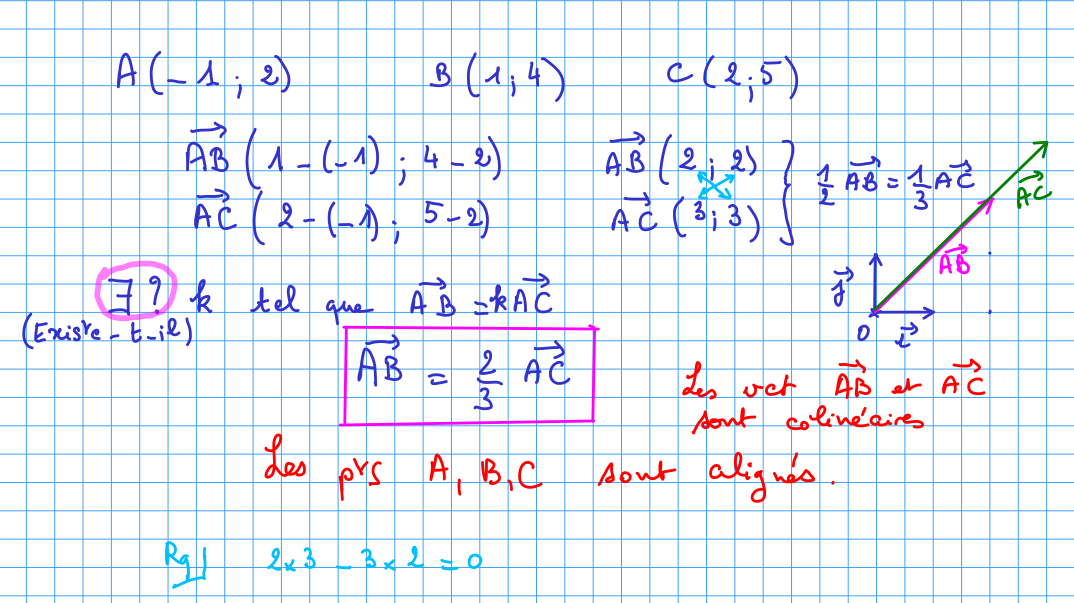 A(-1 ; 2) B(1 ; 4) C(2 ; 5)
$\overrightarrow{AB}$ (1 - (-1) ; 4 - 2) $\overrightarrow{AB}$ (2 ; 2)
$\overrightarrow{AC}$ (2 - (-1) ; 5 - 2) $\overrightarrow{AC}$ (3 ; 3)
$\frac{1}{2} \overrightarrow{AB} = \frac{1}{3} \overrightarrow{AC}$
$\overrightarrow{AC}$
$\overrightarrow{AB}$
$\vec{j}$
O $\vec{i}$
∃ ? k tel que $\overrightarrow{AB} = k\overrightarrow{AC}$
(Existe-t-il)
$\overrightarrow{AB} = \frac{2}{3} \overrightarrow{AC}$
Les vct $\overrightarrow{AB}$ et $\overrightarrow{AC}$
sont colinéaires
Les pts A, B, C sont alignés.
Rq 2 × 3 - 3 × 2 = 0